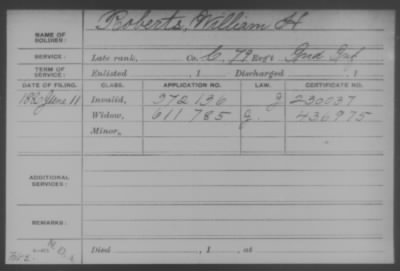 NAME OF SOLDIER: Roberts, William H
SERVICE: Late rank, Co. C, 79 Reg't Ind Inf
TERM OF SERVICE: Enlisted , 1 Discharged , 1
DATE OF FILING. CLASS. APPLICATION NO. LAW. CERTIFICATE NO.
June 11 Invalid, 372136 230037
Widow, 611785 436975
Minor,
ADDITIONAL SERVICES:
REMARKS:
Died , 1 , at